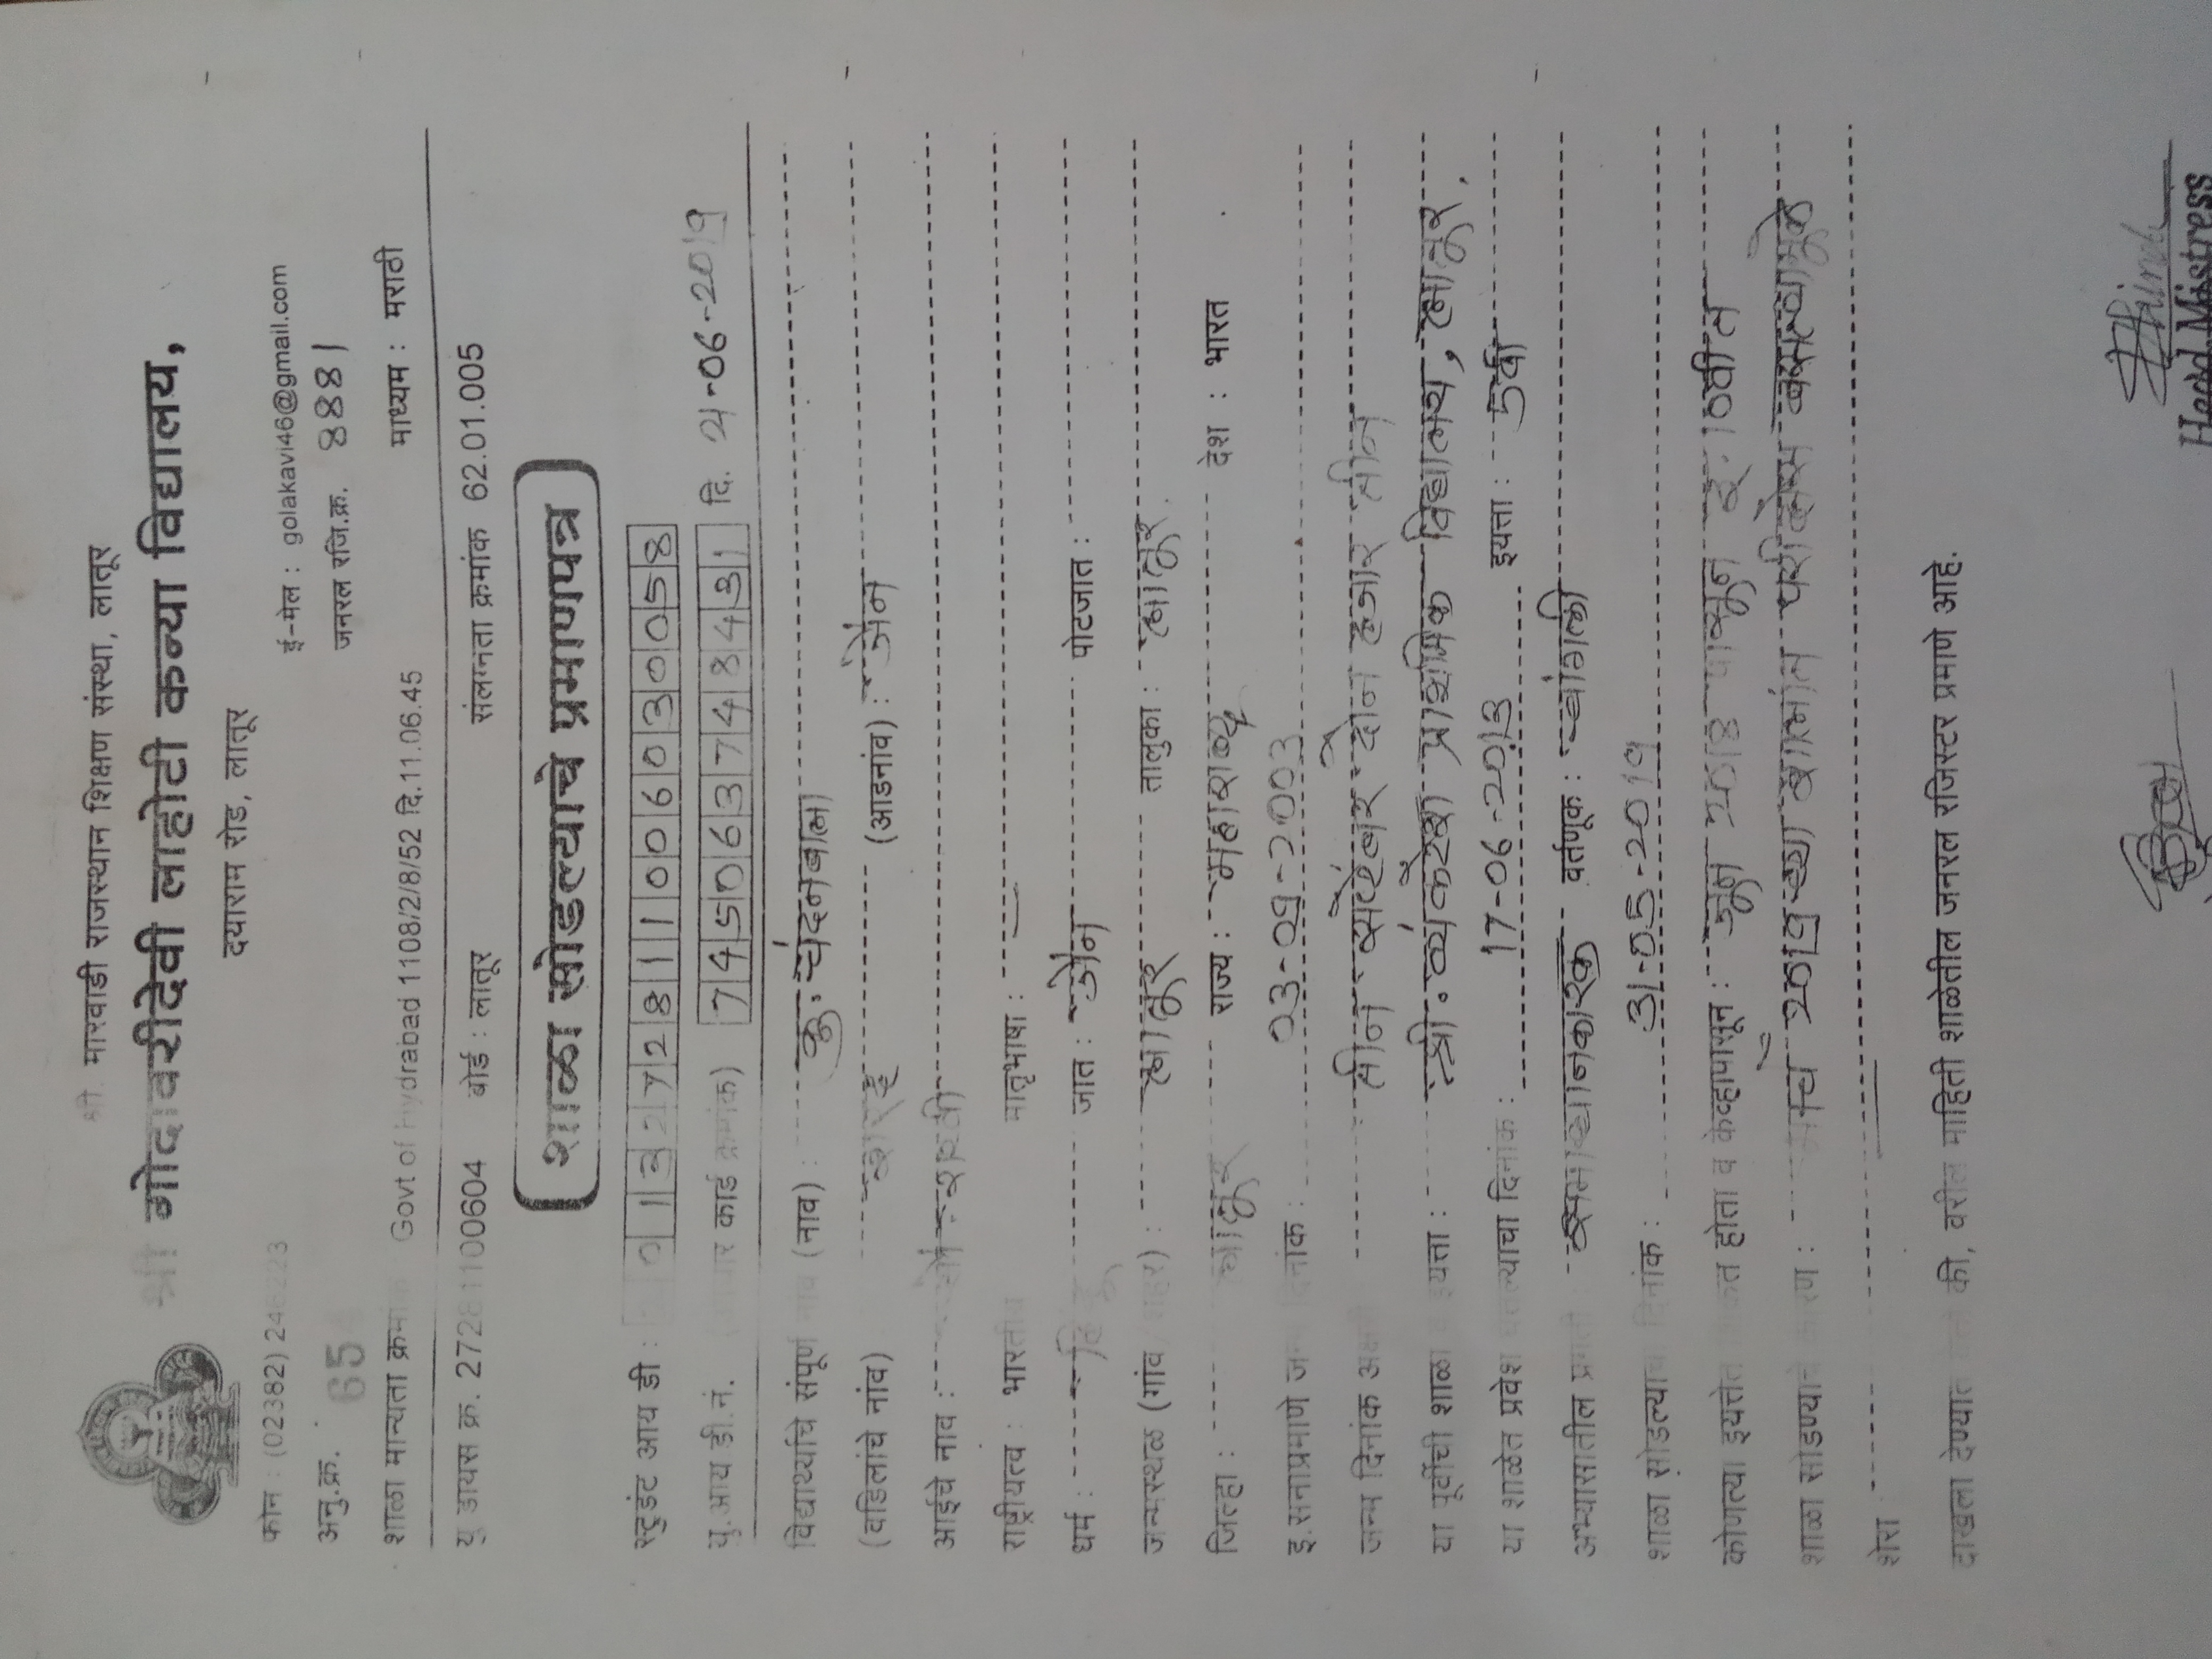 श्री. मारवाडी राजस्थान शिक्षण संस्था, लातूर
श्री गोदावरीदेवी लाहोटी कन्या विद्यालय,
दयाराम रोड, लातूर
फोन : (02382) 246223 ई-मेल : golakavi46@gmail.com
अनु.क्र. 654 जनरल रजि.क्र. 8881
शाळा मान्यता क्रमांक Govt of Hydrabad 1108/2/8/52 दि.11.06.45 माध्यम : मराठी
यु डायस क्र. 27281100604 बोर्ड : लातूर संलग्नता क्रमांक 62.01.005
शाळा सोडल्याचे प्रमाणपत्र
स्टुडंट आय डी : 272811006030058
यु.आय डी.नं. (आधार कार्ड क्रमांक) 745063748431 दि. 21-06-2019
विद्यार्थ्याचे संपूर्ण नाव (नाव) : कु. चंदनबाला
(वडिलांचे नांव) (आडनांव) : जैन
आईचे नाव :
राष्ट्रीयत्व : भारतीय मातृभाषा :
धर्म : हिंदू जात : जैन पोटजात :
जन्मस्थळ (गांव / शहर) : लातूर तालुका : लातूर.
जिल्हा : लातूर राज्य : महाराष्ट्र देश : भारत
इ.सनाप्रमाणे जन्म दिनांक : 03-09-2003
जन्म दिनांक अक्षरी तीन सप्टेंबर दोन हजार तीन
या पूर्वीची शाळा व इयत्ता : श्री. व्यंकटेश प्राथमिक विद्यालय, लातूर.
या शाळेत प्रवेश घेतल्याचा दिनांक : 17-06-2013 इयत्ता : 5वी
अभ्यासातील प्रगती : समाधानकारक वर्तणूक : चांगली
शाळा सोडल्याचा दिनांक : 31-05-2019
कोणत्या इयत्तेत शिकत होता व केव्हापासून : जून 2018 पासून इ. 10वीत
शाळा सोडण्याचे कारण : मार्च 2019 च्या शालांत परीक्षेस बसल्यामुळे
शेरा
दाखला देण्यात येतो की, वरील माहिती शाळेतील जनरल रजिस्टर प्रमाणे आहे.
Head Mistress